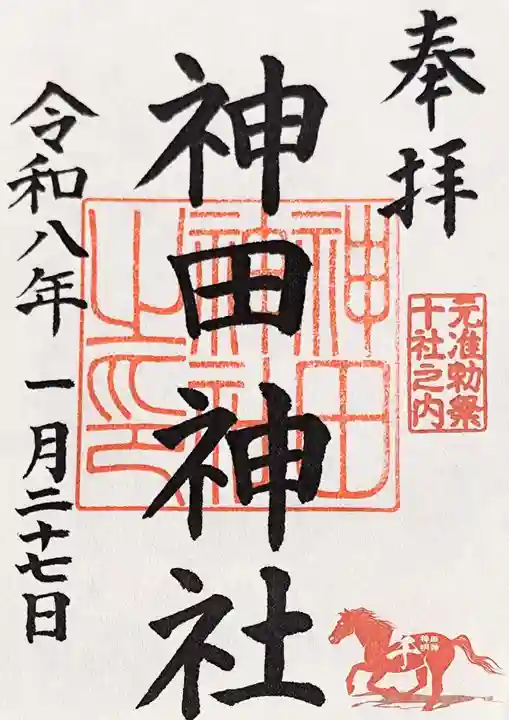 奉拝
元准勅祭
十社之内
神田神社
神田
神社
之印
令和八年 一月二十七日
午